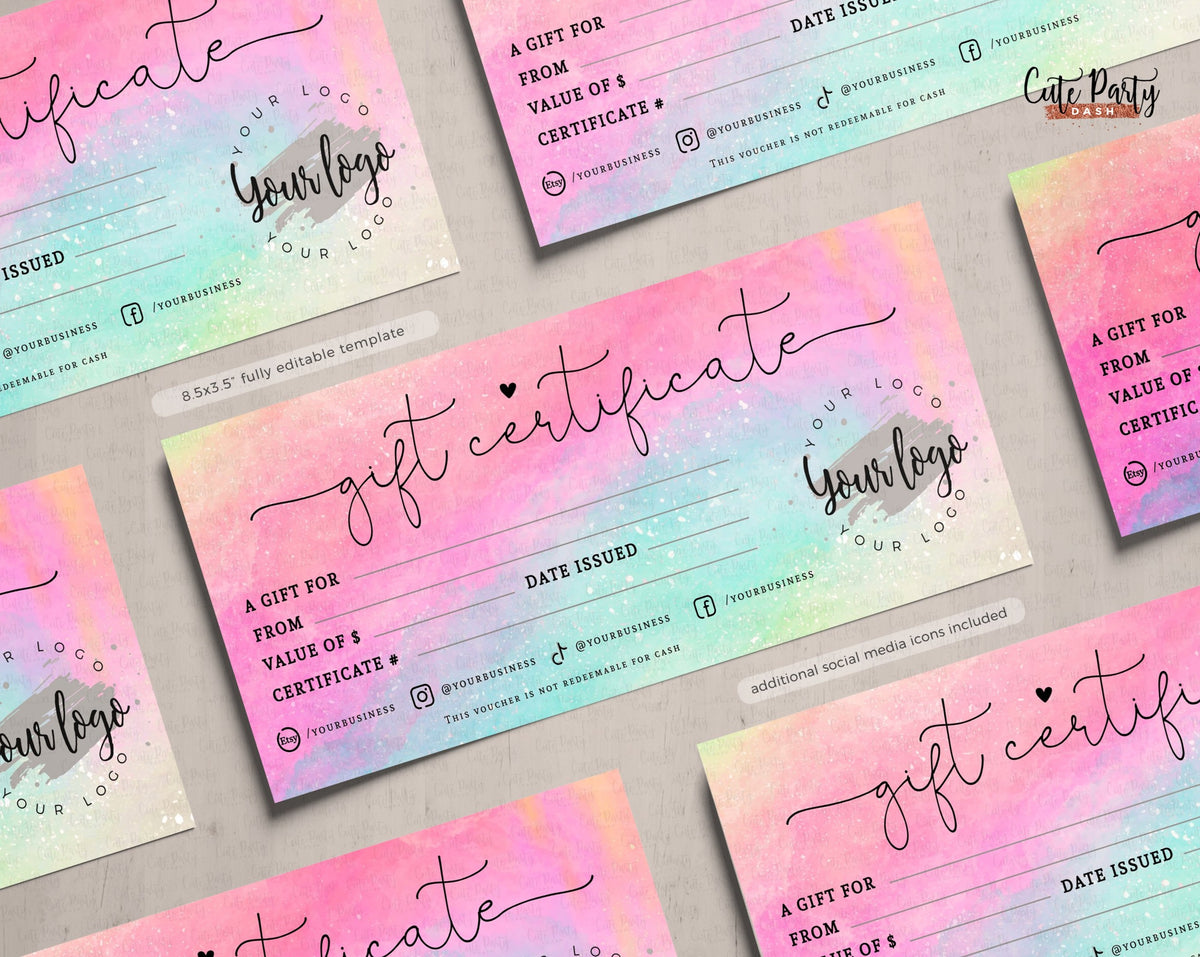 tificate
YOUR LOGO
Your logo
YOUR LOGO
ISSUED
/YOURBUSINESS
@YOURBUSINESS
EDEEMABLE FOR CASH
A GIFT FOR
DATE ISSUED
FROM
VALUE OF $
CERTIFICATE #
Etsy /YOURBUSINESS @YOURBUSINESS @YOURBUSINESS /YOURBUSINESS
THIS VOUCHER IS NOT REDEEMABLE FOR CASH
Cute Party
DASH
8.5x3.5" fully editable template
gift certificate
YOUR LOGO
Your logo
YOUR LOGO
A GIFT FOR
FROM DATE ISSUED
VALUE OF $
CERTIFICATE #
Etsy /YOURBUSINESS @YOURBUSINESS @YOURBUSINESS /YOURBUSINESS
THIS VOUCHER IS NOT REDEEMABLE FOR CASH
A GIFT FOR
FROM
VALUE OF $
CERTIFIC
Etsy /YOURBU
additional social media icons included
R LOGO
our logo
YOUR LOGO
tificate
gift certifi
A GIFT FOR
FROM DATE ISSUED
VALUE OF $
@YOURBUSINESS